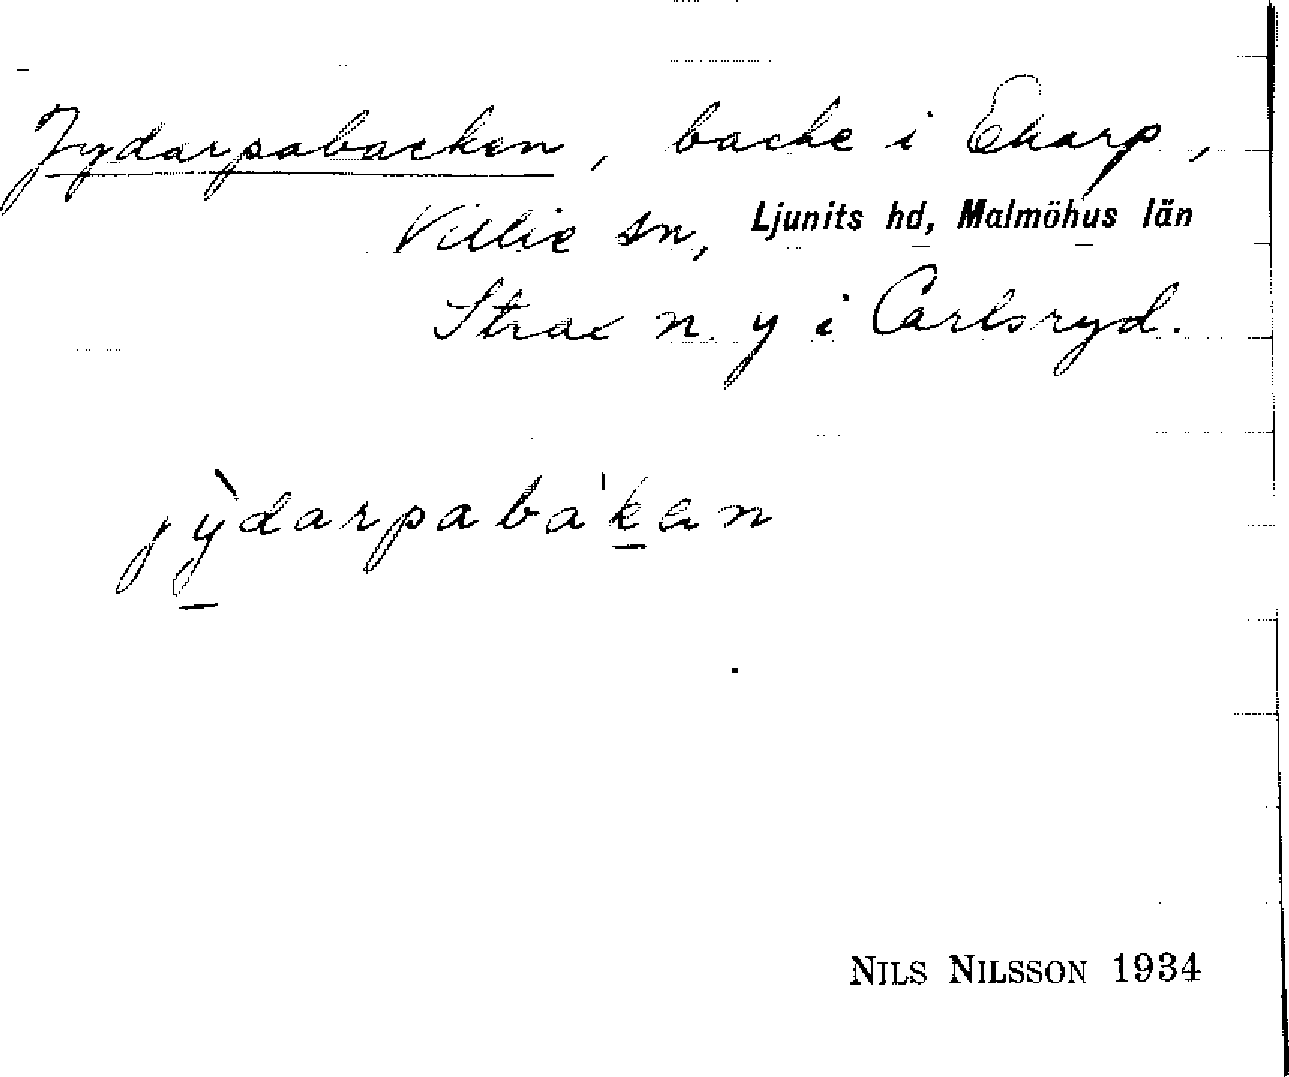 Jydarpabacken, backe i Ekarp,
Villie sn, Ljunits hd, Malmöhus län
Strax n. y i Carlsryd.
jỳ̠darpaba'k̠an
NILS NILSSON 1934